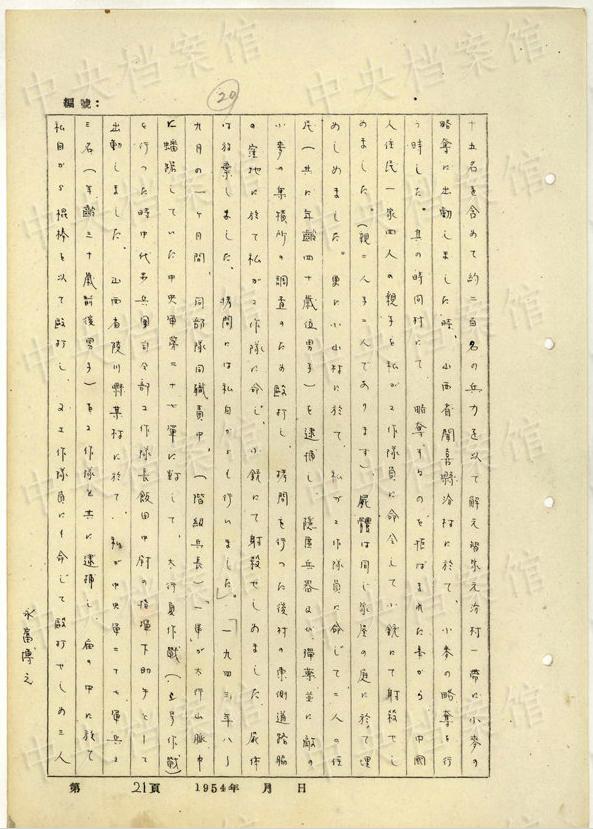 編號：
29
十五名を含めて約二百名の兵力を以て解元智朱元冷村一帯に小麦の
略奪に出動しました時、山西省聞喜縣冷村に於て、小麦の略奪を行
う時した。其の時同村にて、略奪するのを拒ばまれた事から、中国
人住民一家四人の親子を私が工作隊員に命令して小銃にて射殺せし
めました。（親二人子二人であります）屍體は同じ家屋の庭に於て埋
めしめました。更に小山村に於て、私が工作隊員に命じて二人の住
民（共に年齢四十歳位男子）を逮捕し、隠匿兵器及び弾薬並に敵の
小麦の集積所の調査のため殴打し、拷問を行った後村の東側道路脇
の窪地に於て私が工作隊に命じ、小銃にて射殺せしめました。屍体
は放棄しました。拷問には私自からも行いました」。「一九四三年八〜
九月の一ケ月間、同部隊同職責中、（階級兵長）一軍が太行山脈中
に蟠踞していた中央軍第二十七軍に対して、太行夏作戦（S号作戦）
を行った時中代第兵團司令部工作隊長飯田中尉の指揮下助手として
出動しました。山西省陵川縣某村に於て、私が中央軍二七軍兵士
三名（年齢三十歳前後男子）を工作隊と共に逮捕し、廟の中に於て
私自から棍棒を以て殴打し、又工作隊員にも命じて殴打せしめ三人
永富博之
第 21頁 1954年 月 日
中央档案馆